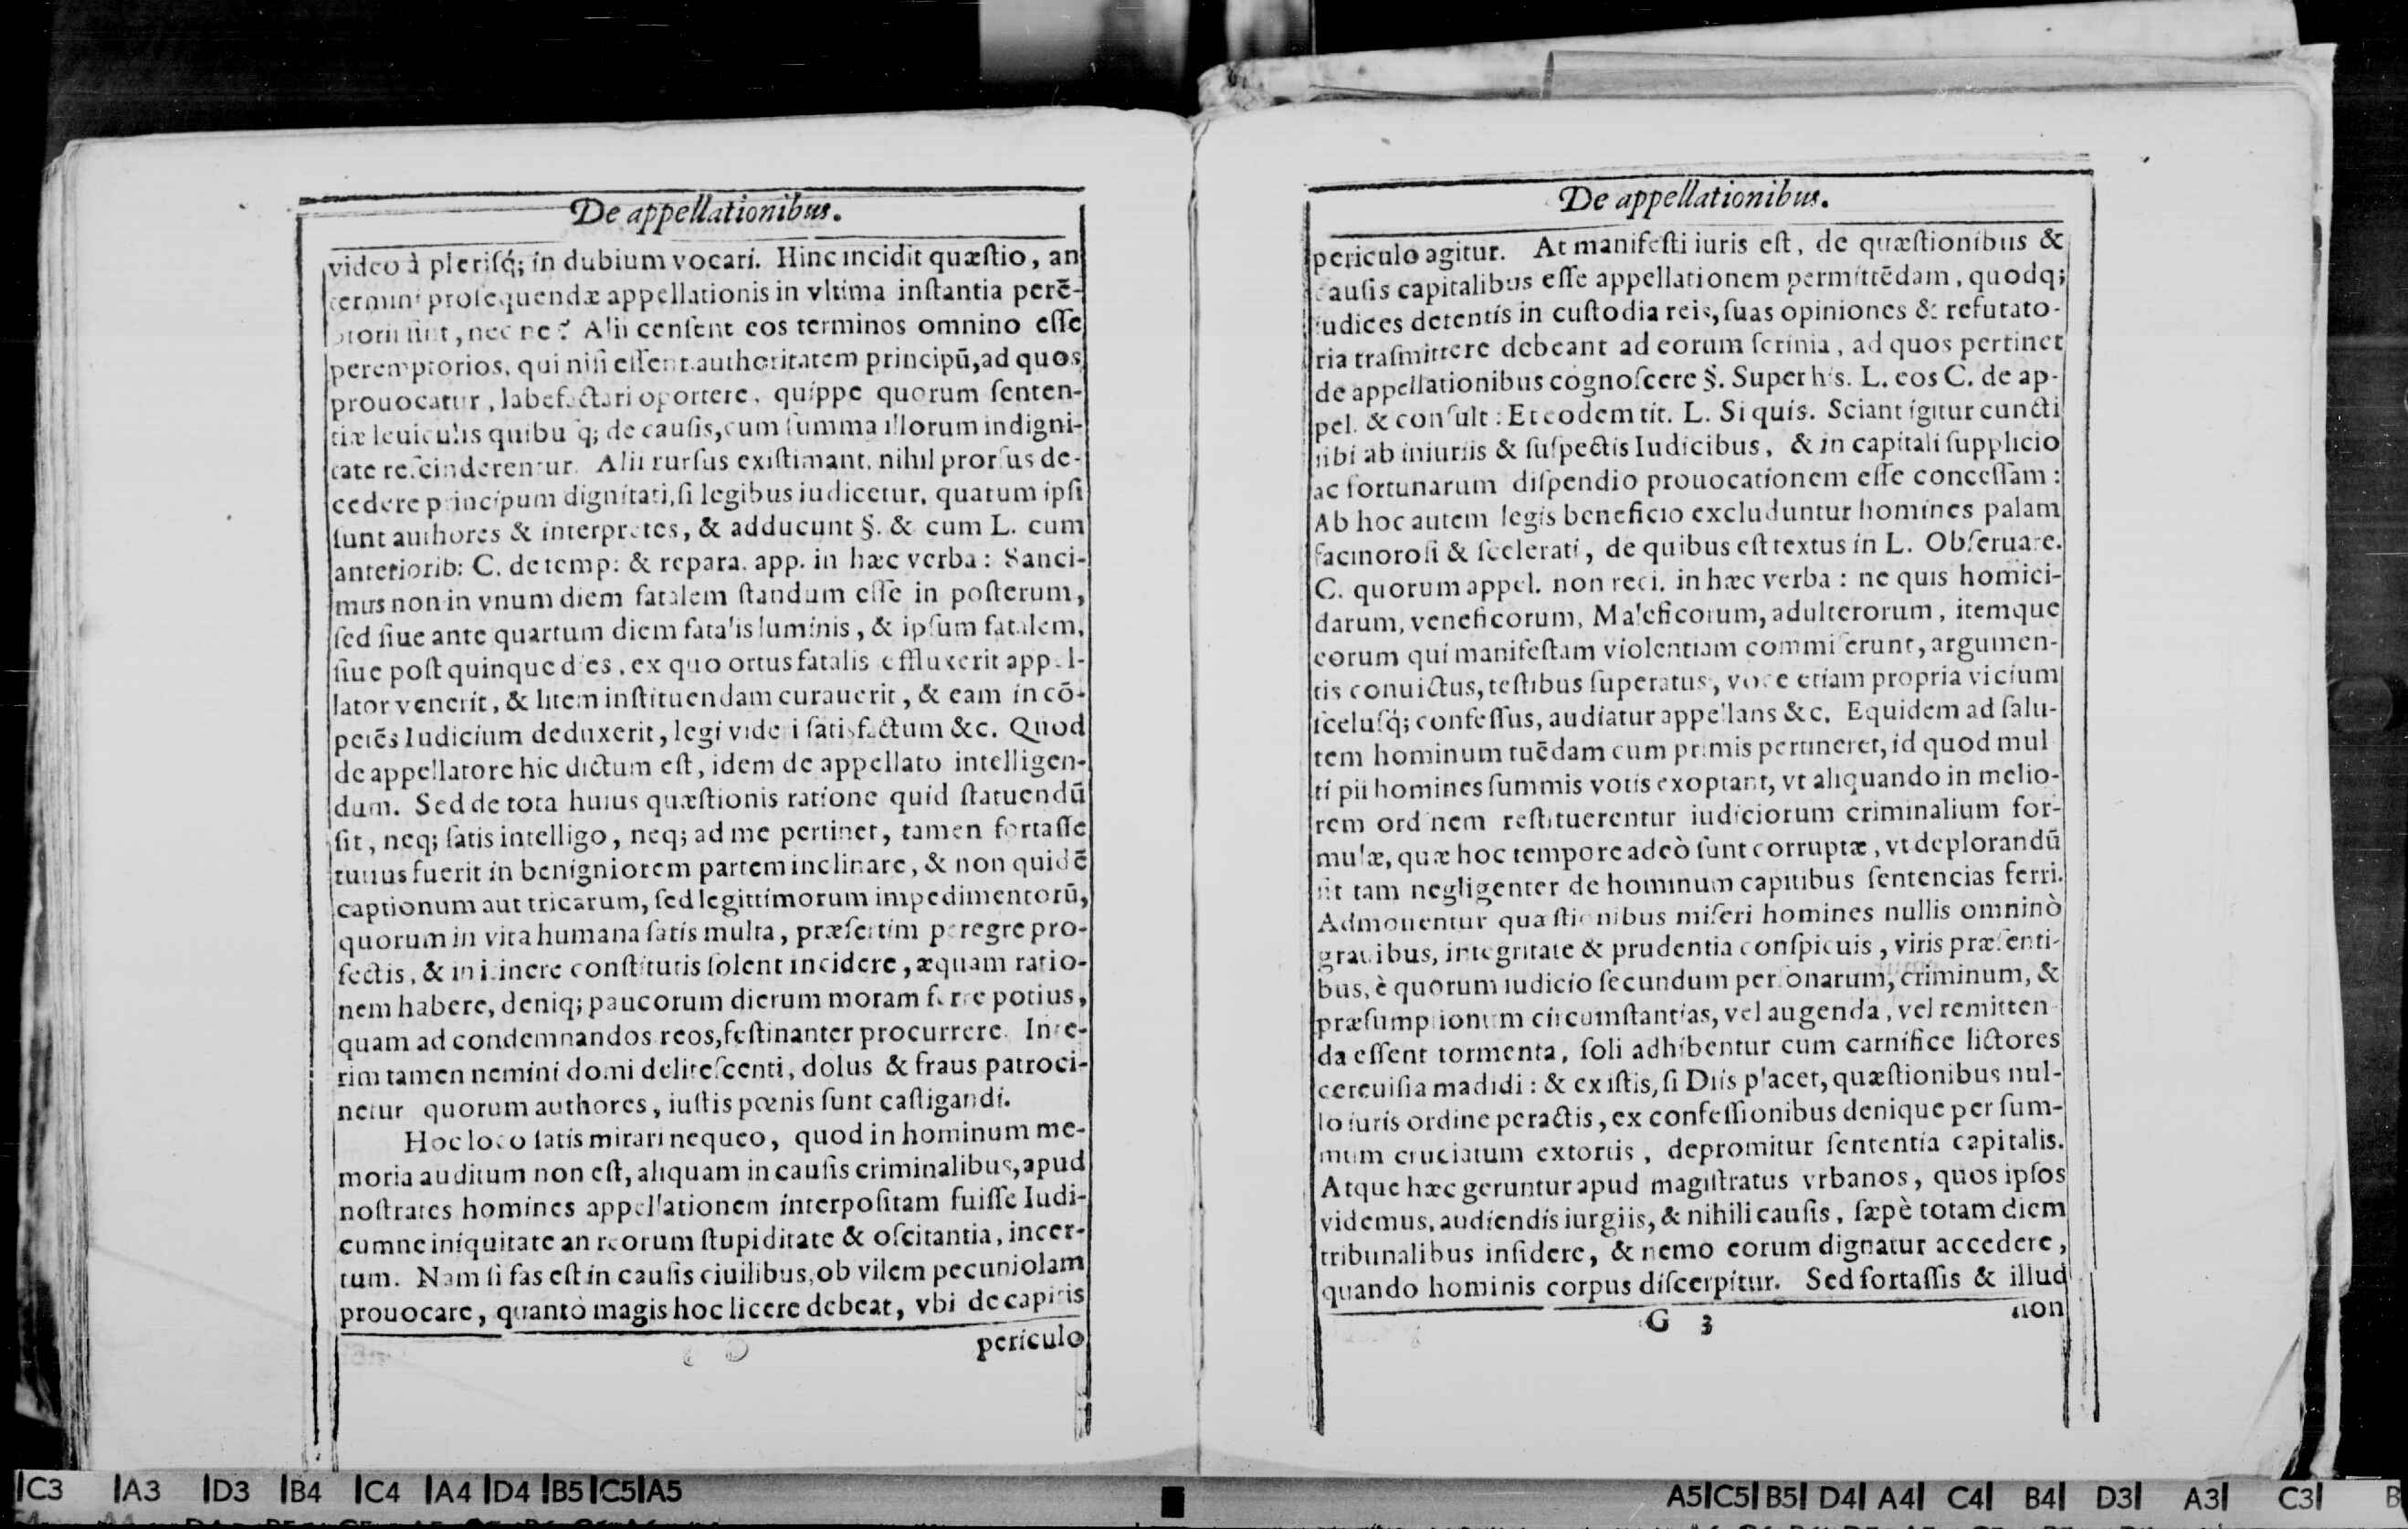 De appellationibus.
video à pleriſq́; in dubium vocari. Hinc incidit quæſtio, an
termini proſequendæ appellationis in vltima inſtantia perē-
ptorii ſint, nec ne? Alii cenſent eos terminos omnino eſſe
peremptorios, qui niſi eſſent authoritatem principū, ad quos
prouocatur, labefactari oportere, quippe quorum ſenten-
tiæ leuiculis quibuſq; de cauſis, cum ſumma illorum indigni-
tate reſcinderentur. Alii rurſus exiſtimant, nihil prorſus de-
cedere principum dignitati, ſi legibus iudicetur, quarum ipſi
ſunt authores & interpretes, & adducunt §. & cum L. cum
anteriorib: C. de temp: & repara. app. in hæc verba: Sanci-
mus non in vnum diem fatalem ſtandum eſſe in poſterum,
ſed ſiue ante quartum diem fatalis luminis, & ipſum fatalem,
ſiue poſt quinque dies, ex quo ortus fatalis effluxerit appel-
lator venerit, & litem inſtituendam curauerit, & eam in cō-
petēs Iudicium deduxerit, legi videri ſatisfactum &c. Quod
de appellatore hic dictum eſt, idem de appellato intelligen-
dum. Sed de tota huius quæſtionis ratione quid ſtatuendū
ſit, neq; ſatis intelligo, neq; ad me pertinet, tamen fortaſſe
tutius fuerit in benigniorem partem inclinare, & non quidē
captionum aut tricarum, ſed legittimorum impedimentorū,
quorum in vita humana ſatis multa, præſertim peregre pro-
fectis, & in itinere conſtitutis ſolent incidere, æquam ratio-
nem habere, deniq; paucorum dierum moram ferre potius,
quam ad condemnandos reos, feſtinanter procurrere. Inte-
rim tamen nemini domi deliteſcenti, dolus & fraus patroci-
netur quorum authores, iuſtis pœnis ſunt caſtigandi.
Hoc loco ſatis mirari nequeo, quod in hominum me-
moria auditum non eſt, aliquam in cauſis criminalibus, apud
noſtrates homines appellationem interpoſitam fuiſſe Iudi-
cumne iniquitate an reorum ſtupiditate & oſcitantia, incer-
tum. Nam ſi fas eſt in cauſis ciuilibus, ob vilem pecuniolam
prouocare, quantò magis hoc licere debeat, vbi de capitis
periculo
De appellationibus.
periculo agitur. At manifeſti iuris eſt, de quæſtionibus &
cauſis capitalibus eſſe appellationem permittēdam, quodq;
iudices detentis in cuſtodia reis, ſuas opiniones & refutato-
ria traſmittere debeant ad eorum ſcrinia, ad quos pertinet
de appellationibus cognoſcere §. Super his. L. eos C. de ap-
pel. & conſult: Et eodem tit. L. Si quis. Sciant igitur cuncti
ſibi ab iniuriis & ſuſpectis Iudicibus, & in capitali ſupplicio
ac fortunarum diſpendio prouocationem eſſe conceſſam:
Ab hoc autem legis beneficio excluduntur homines palam
facinoroſi & ſcelerati, de quibus eſt textus in L. Obſeruare.
C. quorum appel. non reci. in hæc verba: ne quis homici-
darum, veneficorum, Maleficorum, adulterorum, itemque
eorum qui manifeſtam violentiam commiſerunt, argumen-
tis conuictus, teſtibus ſuperatus, voce etiam propria vicium
ſceluſq́; confeſſus, audiatur appellans &c. Equidem ad ſalu-
tem hominum tuēdam cum primis pertineret, id quod mul
ti pii homines ſummis votis exoptant, vt aliquando in melio-
rem ordinem reſtituerentur iudiciorum criminalium for-
mulæ, quæ hoc tempore adeò ſunt corruptæ, vt deplorandū
ſit tam negligenter de hominum capitibus ſentencias ferri.
Admouentur quæſtionibus miſeri homines nullis omninò
grauibus, integritate & prudentia conſpicuis, viris præſenti-
bus, è quorum iudicio ſecundum perſonarum, criminum, &
præſumptionum circumſtantias, vel augenda, vel remitten
da eſſent tormenta, ſoli adhibentur cum carnifice lictores
cereuiſia madidi: & ex iſtis, ſi Diis placet, quæſtionibus nul-
lo iuris ordine peractis, ex confeſſionibus denique per ſum-
mum cruciatum extortis, depromitur ſententia capitalis.
Atque hæc geruntur apud magiſtratus vrbanos, quos ipſos
videmus, audiendis iurgiis, & nihili cauſis, ſæpè totam diem
tribunalibus inſidere, & nemo eorum dignatur accedere,
quando hominis corpus diſcerpitur. Sed fortaſſis & illud
G 3 non
C3 A3 D3 B4 C4 A4 D4 B5 C5 A5
A5 C5 B5 D4 A4 C4 B4 D3 A3 C3 B